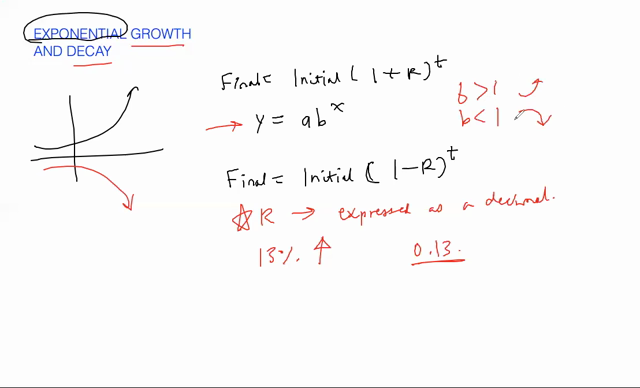 EXPONENTIAL GROWTH
AND DECAY
Final = Initial (1+R)^t
b>1
y = ab^x
b<1
Final = Initial (1-R)^t
R → expressed as a decimal.
13% ↑ 0.13.